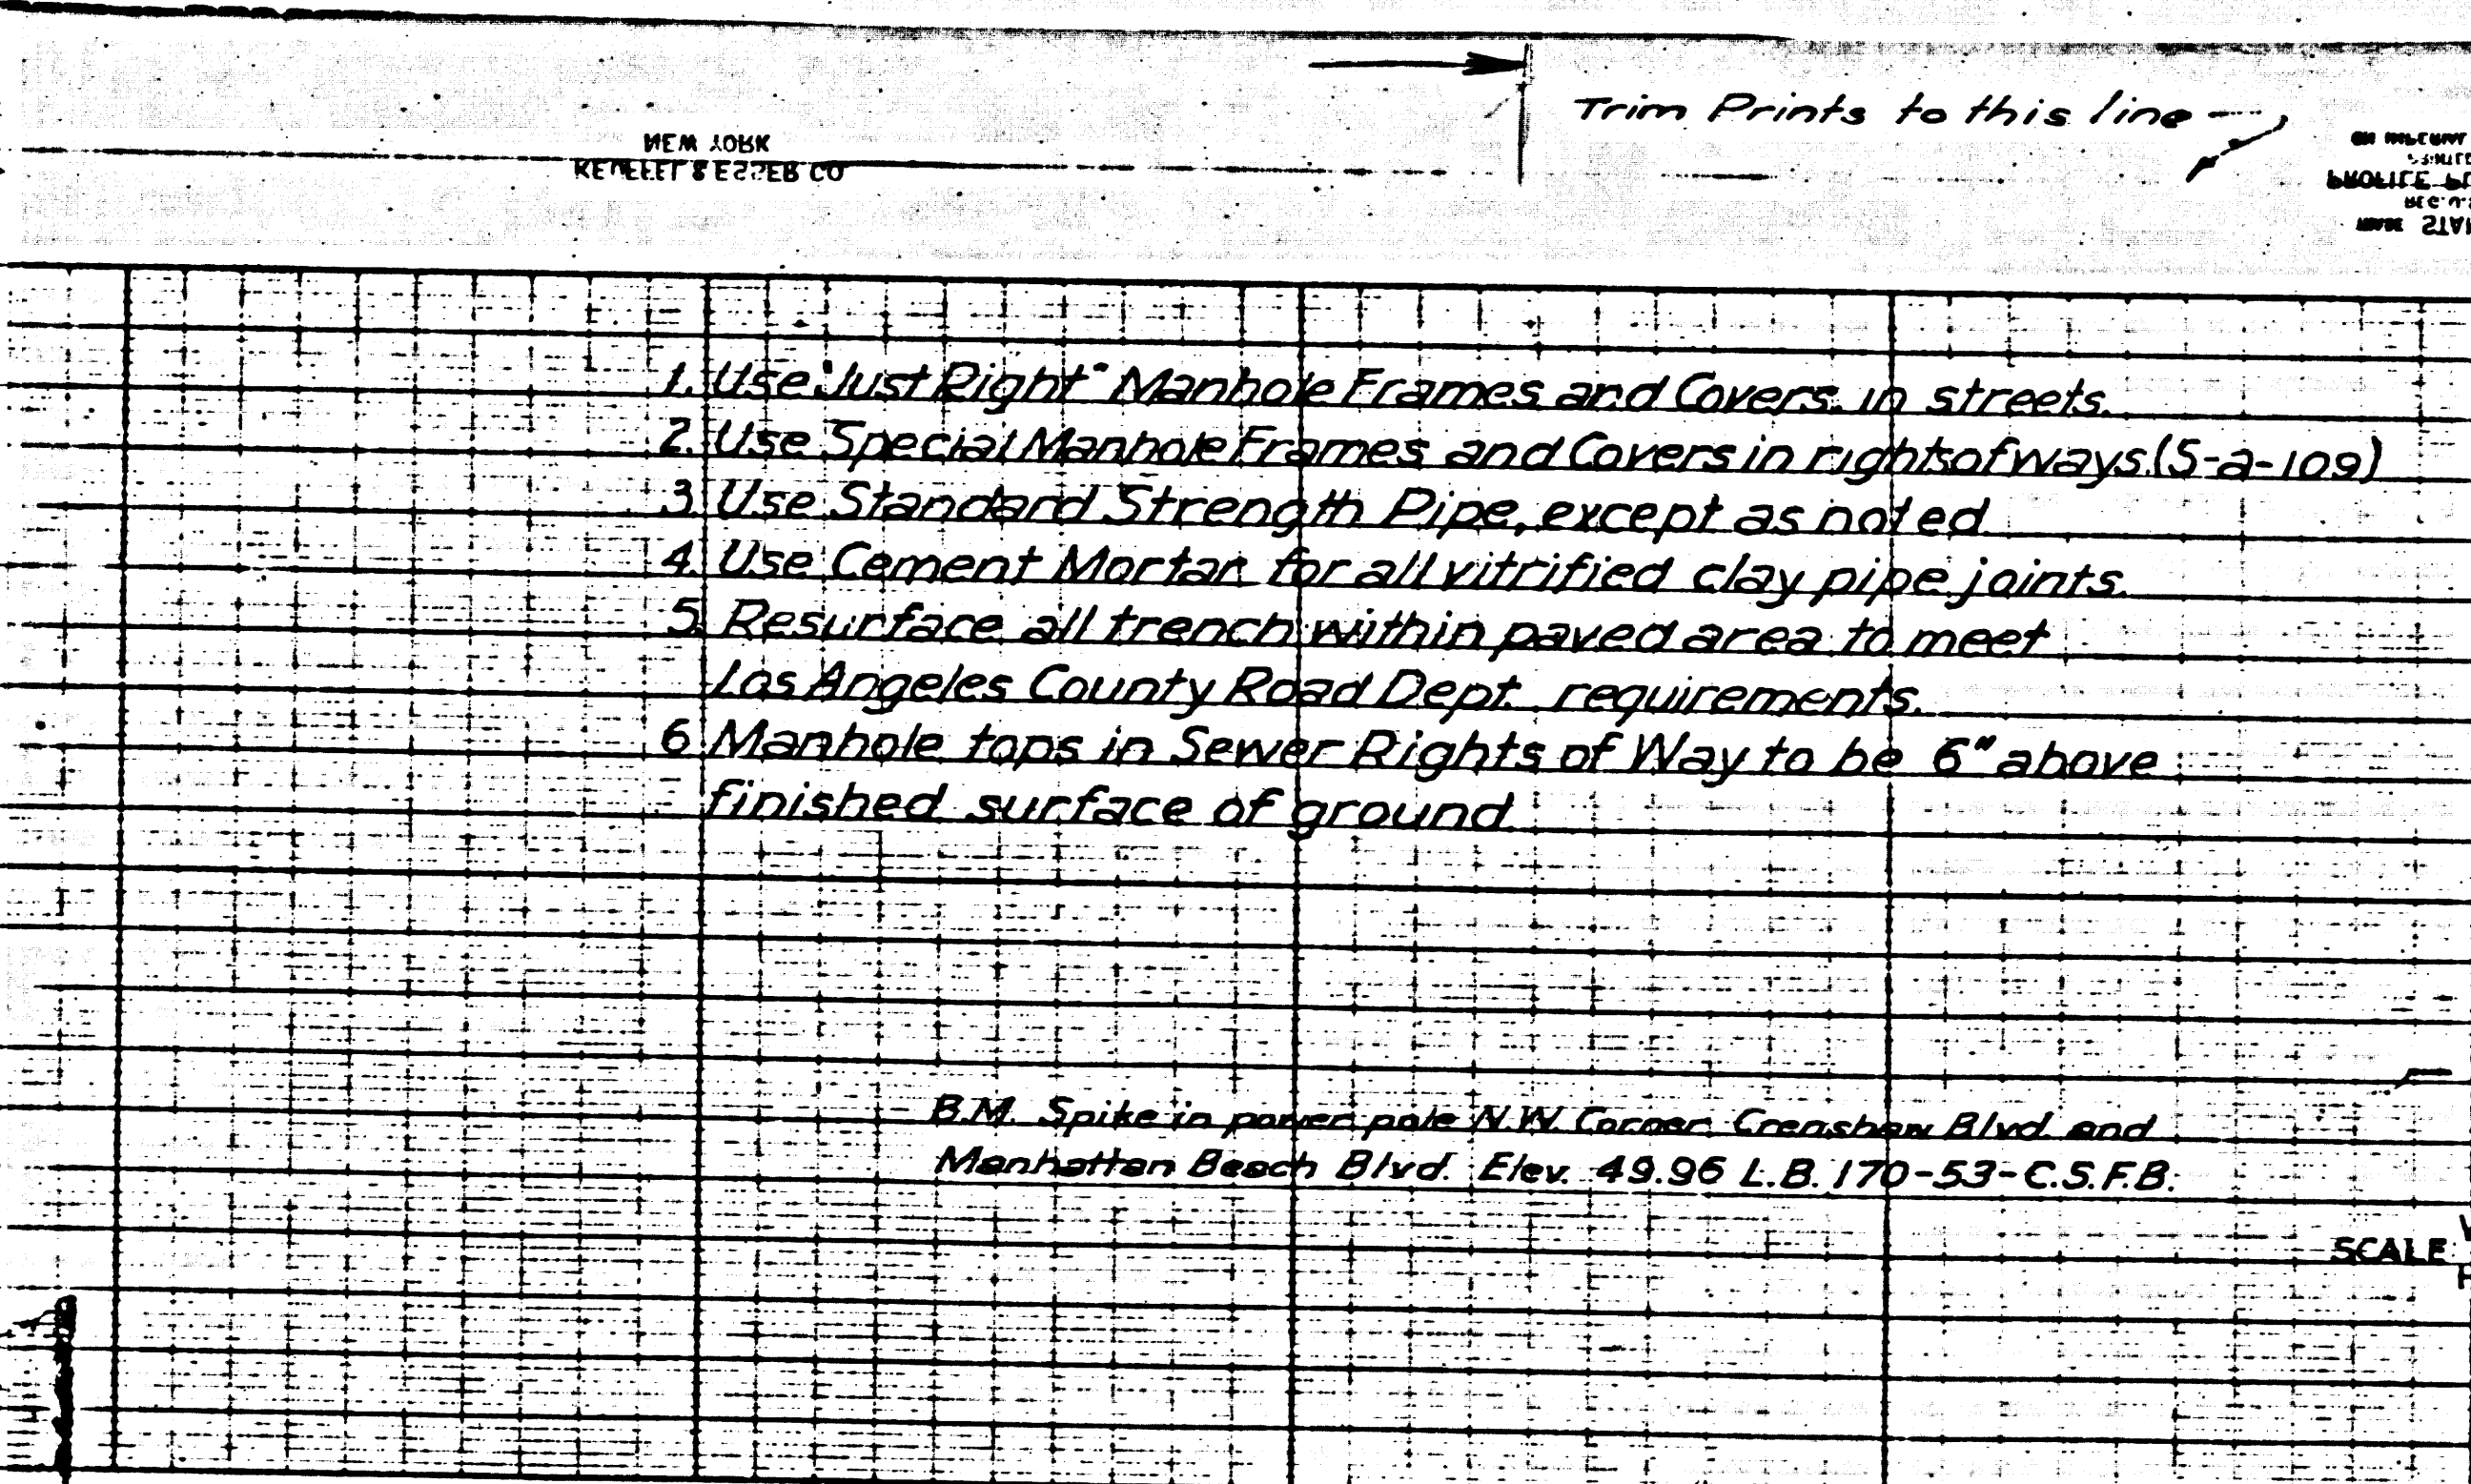 Trim Prints to this line
NEW YORK
KEUFFEL & ESSER CO
PROFILE
1. Use "Just Right" Manhole Frames and Covers in streets.
2. Use Special Manhole Frames and Covers in rights of ways (S-a-109)
3. Use Standard Strength Pipe, except as noted
4. Use Cement Mortar for all vitrified clay pipe joints.
5. Resurface all trench within paved area to meet
Los Angeles County Road Dept. requirements.
6 Manhole tops in Sewer Rights of Way to be 6" above
finished surface of ground
B.M. Spike in power pole N.W. Corner Crenshaw Blvd. and
Manhattan Beach Blvd. Elev. 49.96 L.B. 170-53-C.S.F.B.
SCALE